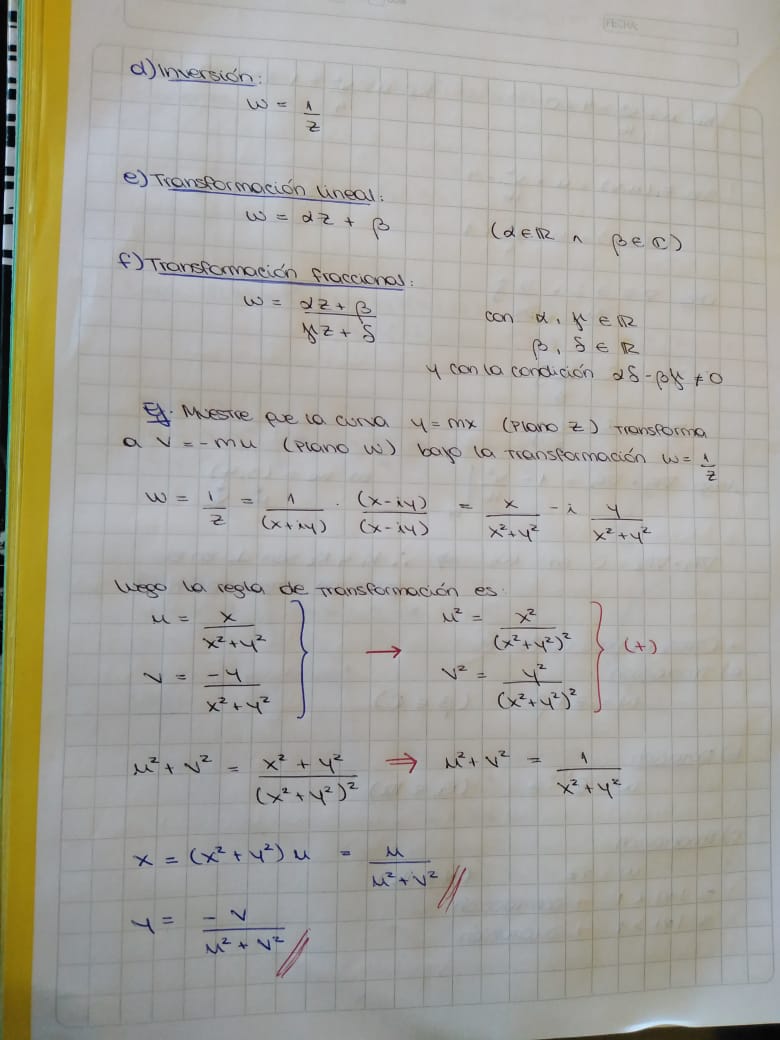 FECHA:
d) Inversión:
w = 1/z
e) Transformación lineal:
w = αz + β (α ∈ ℝ ∧ β ∈ ℂ)
f) Transformación fraccional:
w = (αz + β)/(γz + δ) con α, γ ∈ ℝ
β, δ ∈ ℝ
y con la condición αδ - βγ ≠ 0
Ej. Muestre que la curva y = mx (plano z) transforma
a v = -mu (plano w) bajo la transformación w = 1/z
w = 1/z = 1/(x+iy) · (x-iy)/(x-iy) = x/(x²+y²) - i y/(x²+y²)
Luego la regla de transformación es:
u = x/(x²+y²) → u² = x²/(x²+y²)²
v = -y/(x²+y²) v² = y²/(x²+y²)² (+)
u² + v² = (x² + y²)/(x²+y²)² ⇒ u² + v² = 1/(x² + y²)
x = (x² + y²) u = u/(u² + v²)
y = -v/(u² + v²)